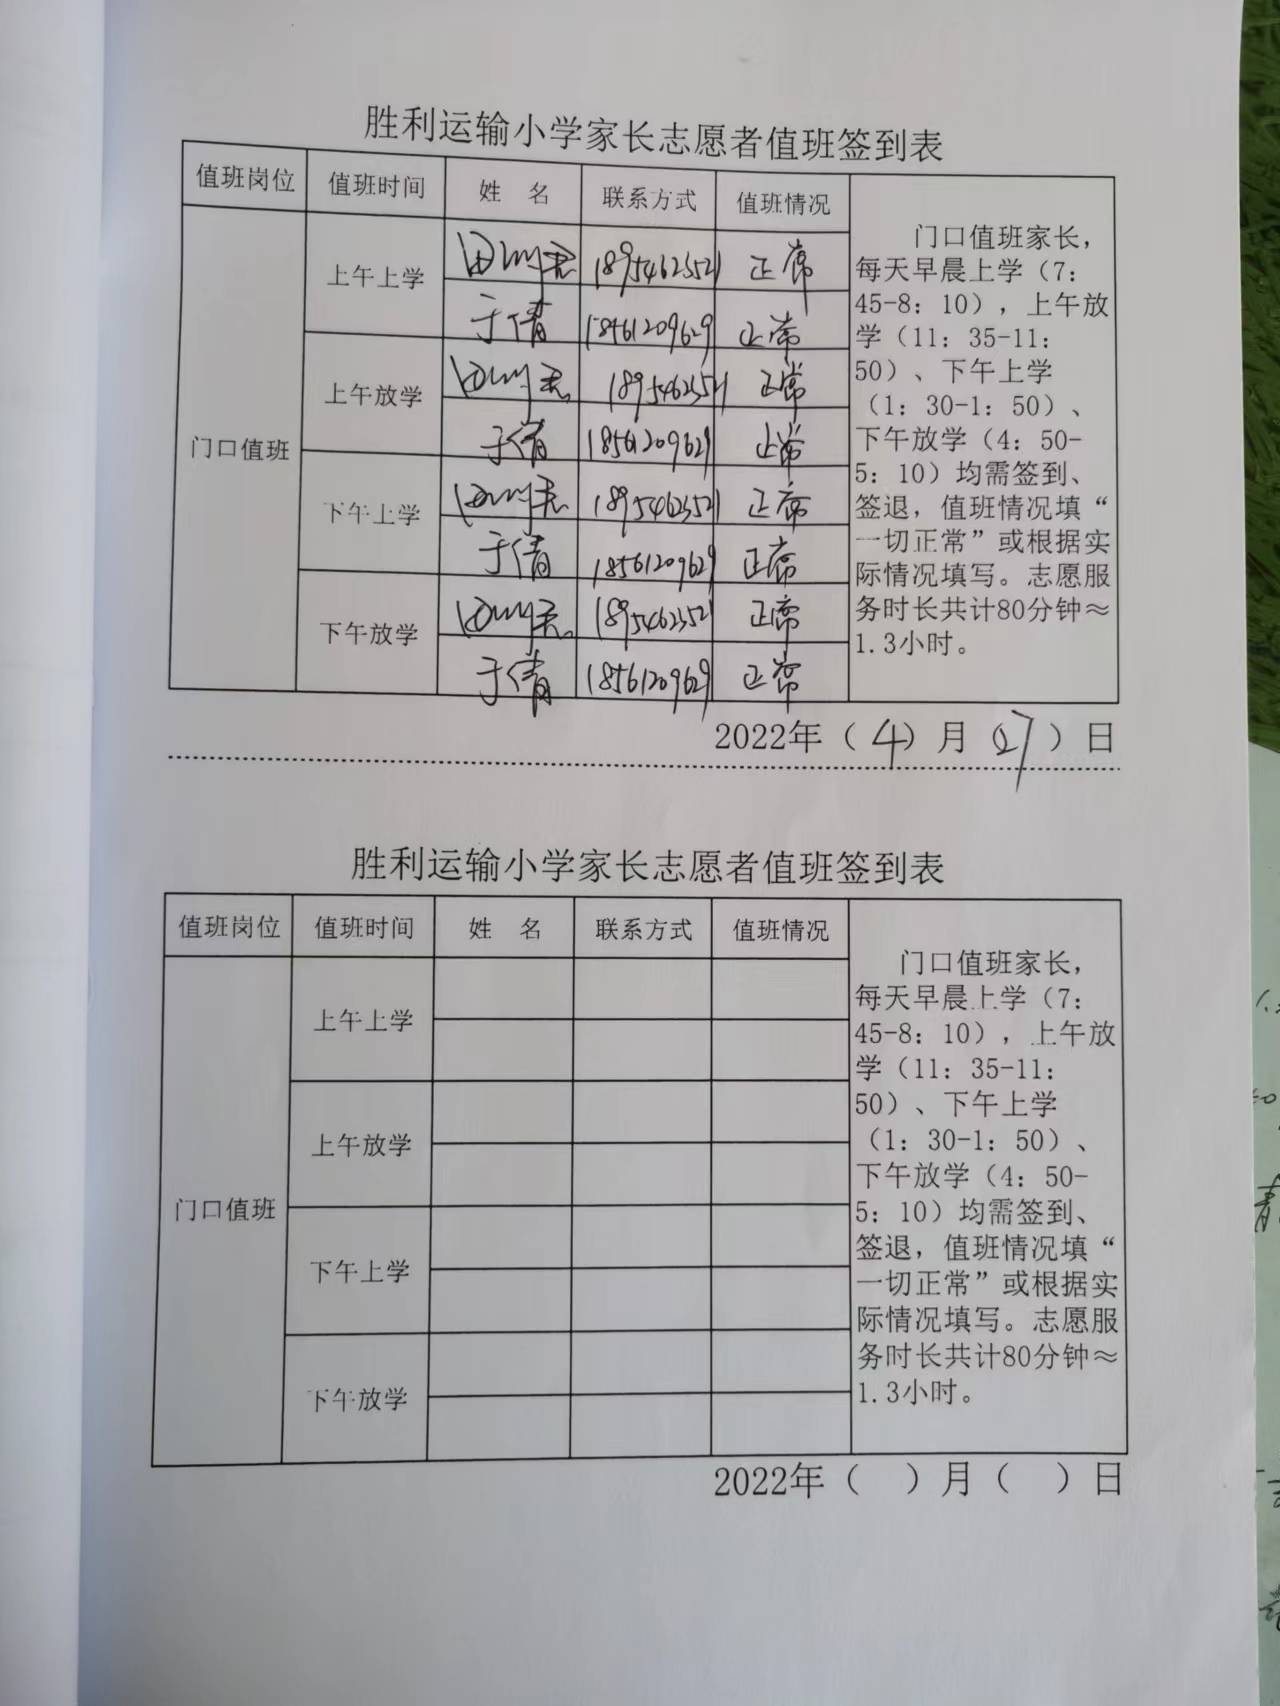 胜利运输小学家长志愿者值班签到表
值班岗位 值班时间 姓 名 联系方式 值班情况
门口值班家长，
每天早晨上学（7：
45-8：10），上午放
学（11：35-11：
50）、下午上学
（1：30-1：50）、
下午放学（4：50-
5：10）均需签到、
签退，值班情况填“
一切正常”或根据实
际情况填写。志愿服
务时长共计80分钟≈
1.3小时。
门口值班
上午上学
18954623521 正常
于倩 18561209629 正常
上午放学
正常
于倩 18561209629 正常
下午上学
18954623521 正常
于倩 18561209629 正常
下午放学
18954623521 正常
于倩 18561209629 正常
2022年（4）月（27）日
胜利运输小学家长志愿者值班签到表
值班岗位 值班时间 姓 名 联系方式 值班情况
门口值班家长，
每天早晨上学（7：
45-8：10），上午放
学（11：35-11：
50）、下午上学
（1：30-1：50）、
下午放学（4：50-
5：10）均需签到、
签退，值班情况填“
一切正常”或根据实
际情况填写。志愿服
务时长共计80分钟≈
1.3小时。
门口值班
上午上学
上午放学
下午上学
下午放学
2022年（ ）月（ ）日